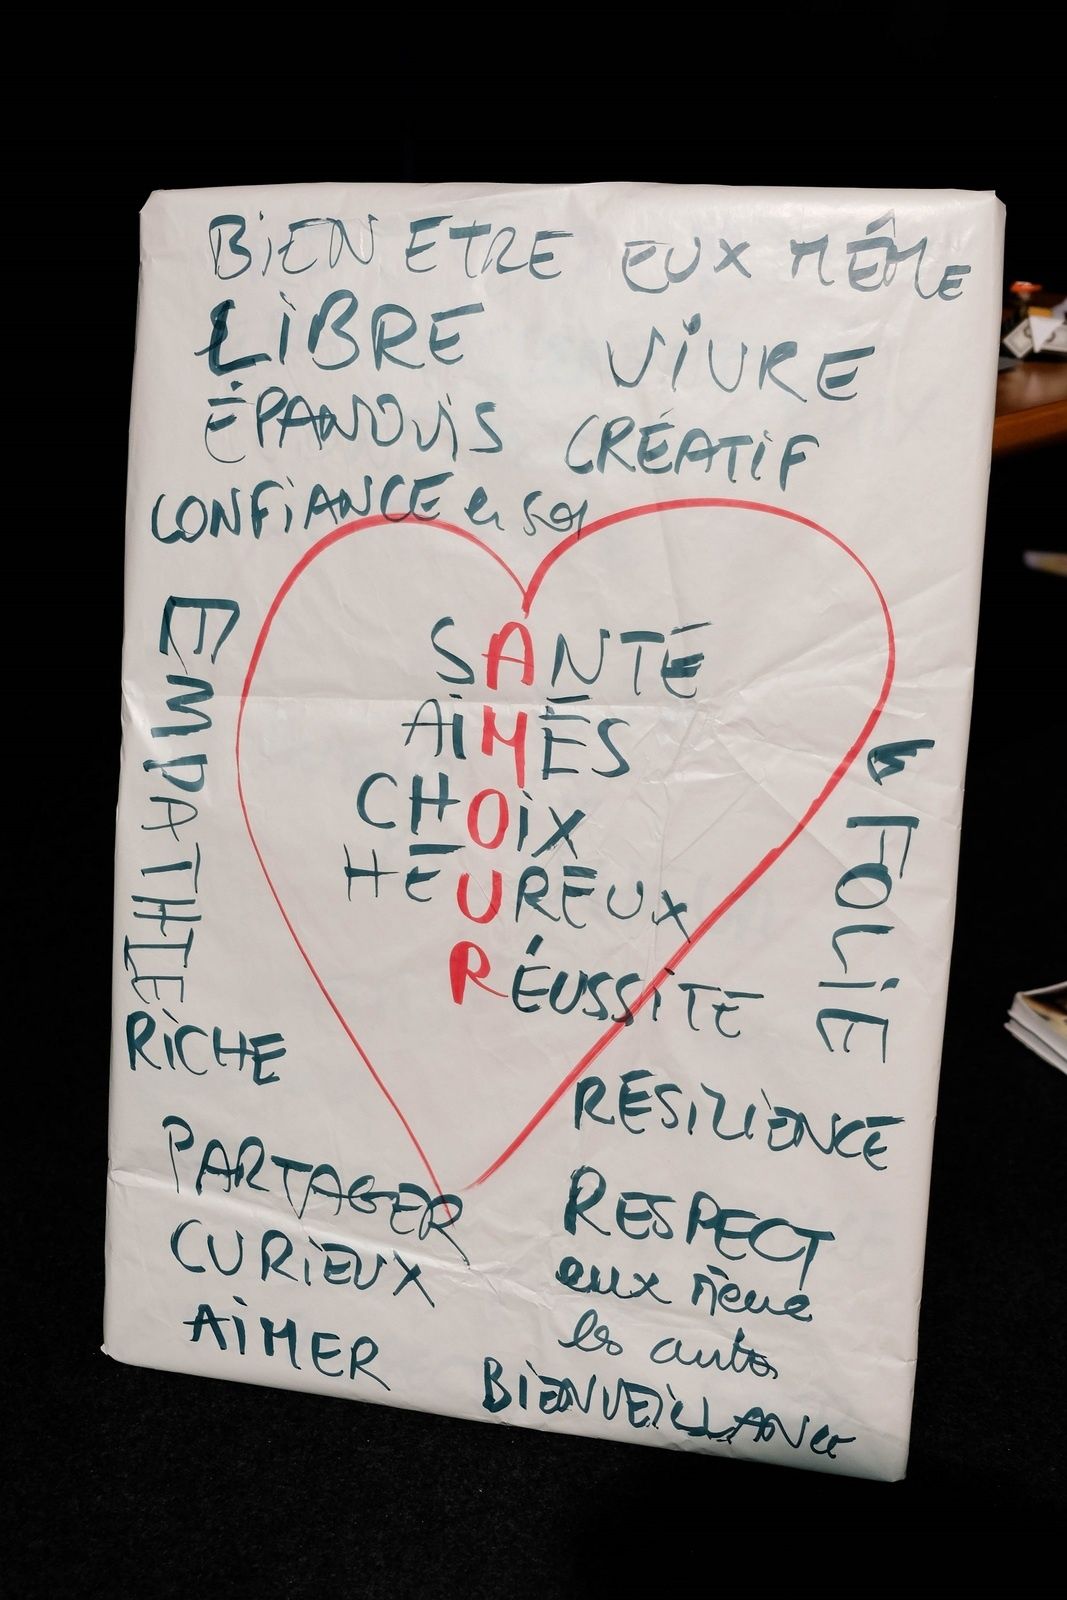 BiEN ETRE EUX MÊME
LiBRE ViVRE
ÉPANOUiS CRÉATiF
CONFiANCE en soi
EMPATHIE
SANTÉ
AiMÉS
CHOiX
HEUREUX
RÉUSSiTE
FOLiE
RiCHE
RESiLiENCE
PARTAGER
RESPECT
CURiEUX
eux même
AiMER
les autres
BiENVEiLLANce